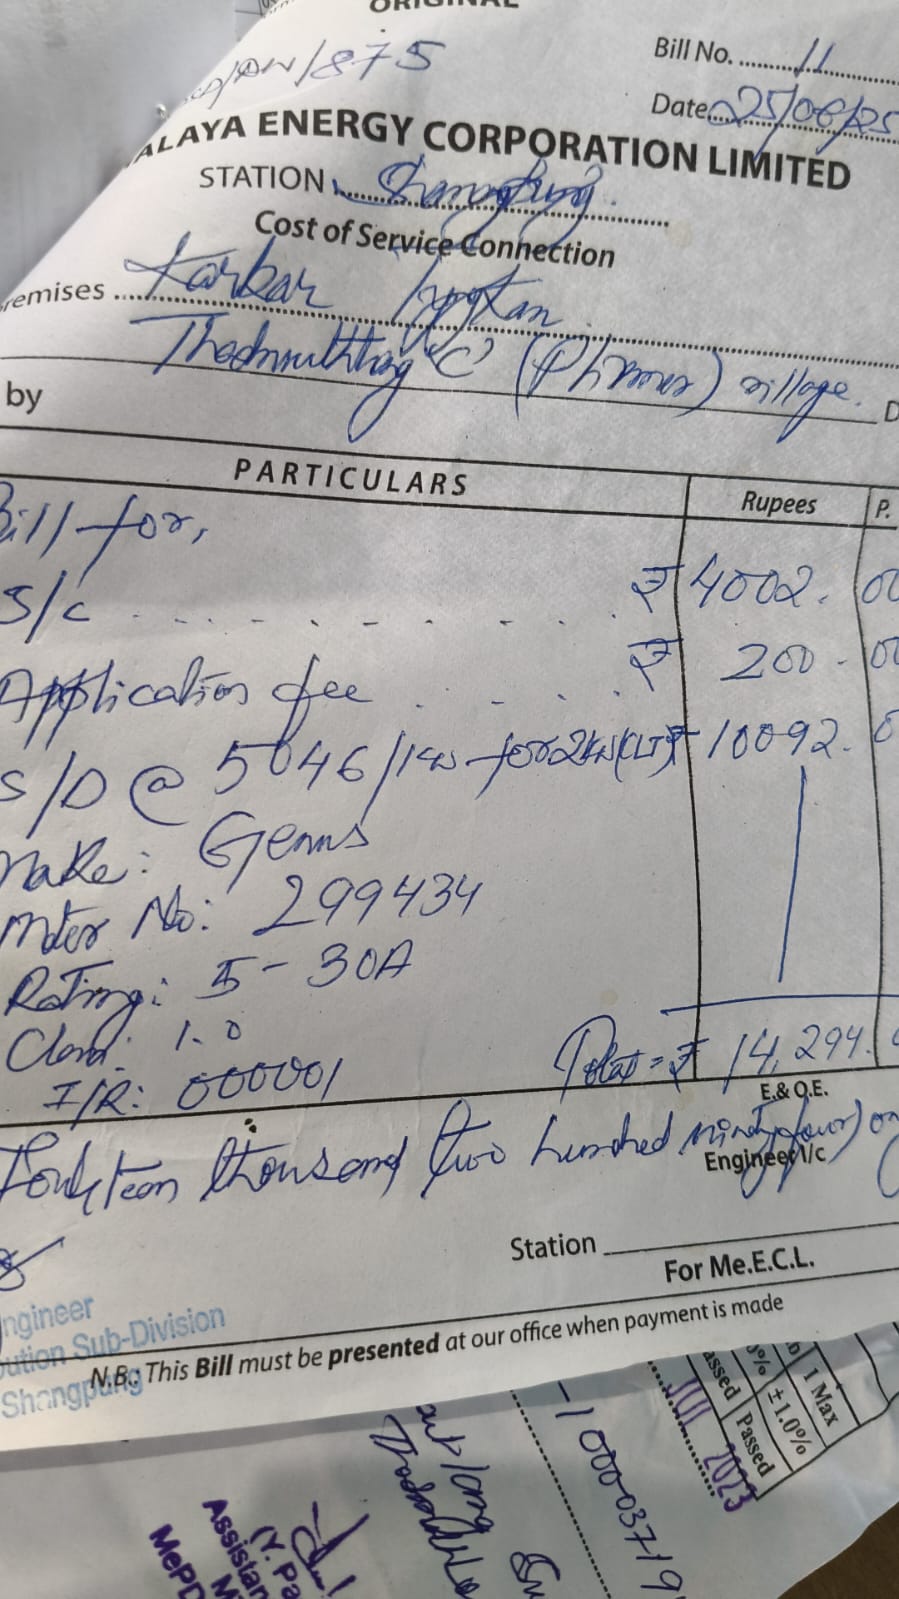 ORIGINAL
/875
Bill No. 11
Date 25/06/25
ALAYA ENERGY CORPORATION LIMITED
STATION Shangpung
Cost of Service Connection
remises Karbar
"C" village.
by D
PARTICULARS Rupees P.
Bill for,
S/C ₹ 4002. 00
Application fee ₹ 200 - 00
S/D @ 5046/kw for 2kw(CLT) ₹ 10092. 0
Make: Genus
Meter No: 299434
Rating: 5-30A
Class: 1.0
I/R: 000001 Total = ₹ 14,294.
E.& O.E.
Fourteen thousand two hundred ninety four)
Engineer I/c
Station
For Me.E.C.L.
ngineer
bution Sub-Division
Shangpung
N.B.: This Bill must be presented at our office when payment is made
assed Passed
0% ±1.0%
1 Max
JUL 2023
-100003719
(Y. Pa
Assistan
MePD